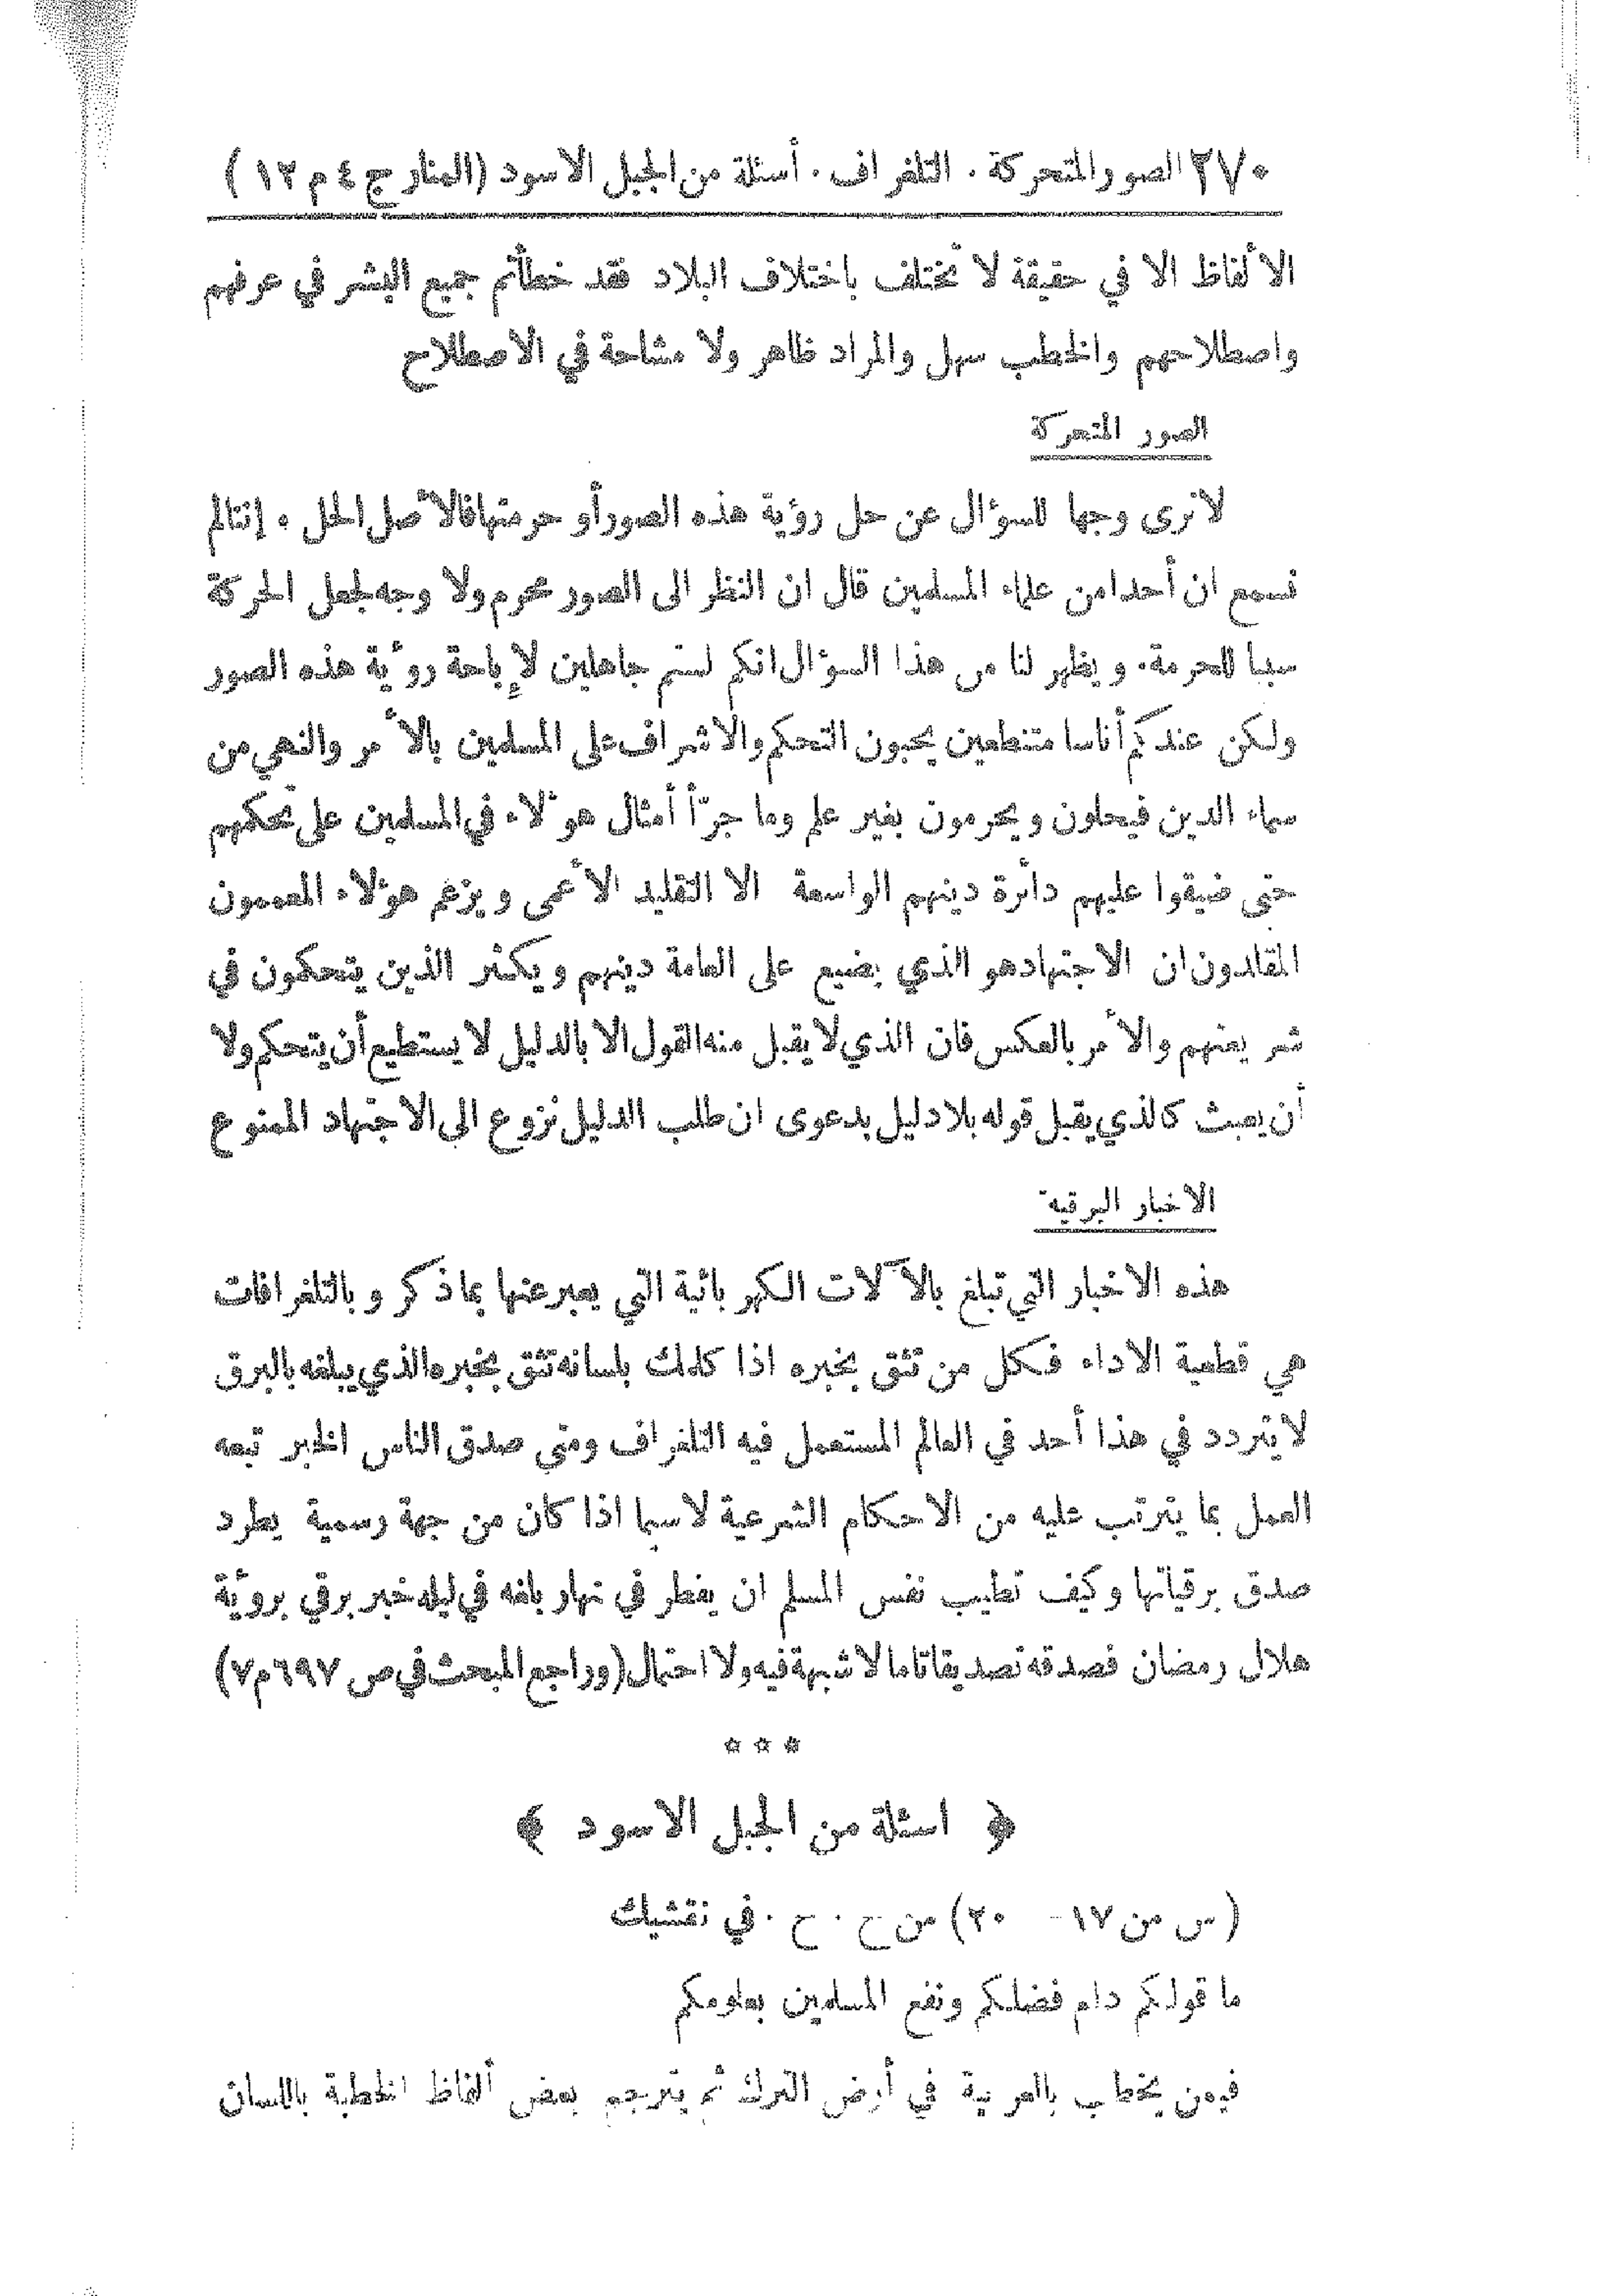 ٢٧٠ الصور المتحركة . التلغراف . أسئلة من الجبل الاسود (المنار ج ٤ م ١٣ )
الألفاظ الا في حقيقة لا تختلف باختلاف البلاد فقد خطأتم جميع البشر في عرفهم
واصطلاحهم والخطب سهل والمراد ظاهر ولا مشاحة في الاصطلاح
الصور المتحركة
لا نرى وجها للسؤال عن حل رؤية هذه الصور أو حرمتها فالأصل الحل . إننا لم
نسمع ان أحدا من علماء المسلمين قال ان النظر الى الصور محرم ولا وجه لجعل الحركة
سببا للحرمة . ويظهر لنا من هذا السؤال انكم لستم جاهلين لإباحة رؤية هذه الصور
ولكن عندكم أناسا متنطعين يحبون التحكم والاشراف على المسلمين بالأمر والنهي من
سماء الدين فيحلون ويحرمون بغير علم وما جرّأ أمثال هؤلاء في المسلمين على تحكمهم
حتى ضيقوا عليهم دائرة دينهم الواسعة الا التقليد الأعمى ويزعم هؤلاء المعممون
المقلدون ان الاجتهاد هو الذي يضيع على العامة دينهم ويكثر الذين يتحكمون في
شريعتهم والأمر بالعكس فان الذي لا يقبل منه القول الا بالدليل لا يستطيع أن يتحكم ولا
أن يعبث كالذي يقبل قوله بلا دليل بدعوى ان طلب الدليل نزوع الى الاجتهاد الممنوع
الاخبار البرقية
هذه الاخبار التي تبلغ بالآلات الكهربائية التي يعبر عنها بما ذكر وبالتلغرافات
هي قطعية الاداء فكل من تثق بخبره اذا كلمك بلسانه تثق بخبره الذي يبلغه بالبرق
لا يتردد في هذا أحد في العالم المستعمل فيه التلغراف ومتى صدق الناس الخبر تبعه
العمل بما يترتب عليه من الاحكام الشرعية لا سيما اذا كان من جهة رسمية يطرد
صدق برقياتها وكيف تطيب نفس المسلم ان يفطر في نهار بلغه في ليله خبر برقي برؤية
هلال رمضان فصدقه تصديقا تاما لا شبهة فيه ولا احتمال (وراجع المبحث في ص ٦٩٧ م ٧)
* * *
﴿ اسئلة من الجبل الاسود ﴾
( س من ١٧ - ٢٠ ) من ح . ح . في نقشيك
ما قولكم دام فضلكم ونفع المسلمين بعلومكم
فيمن يخطب بالعربية في أرض الترك ثم يترجم بعض ألفاظ الخطبة باللسان